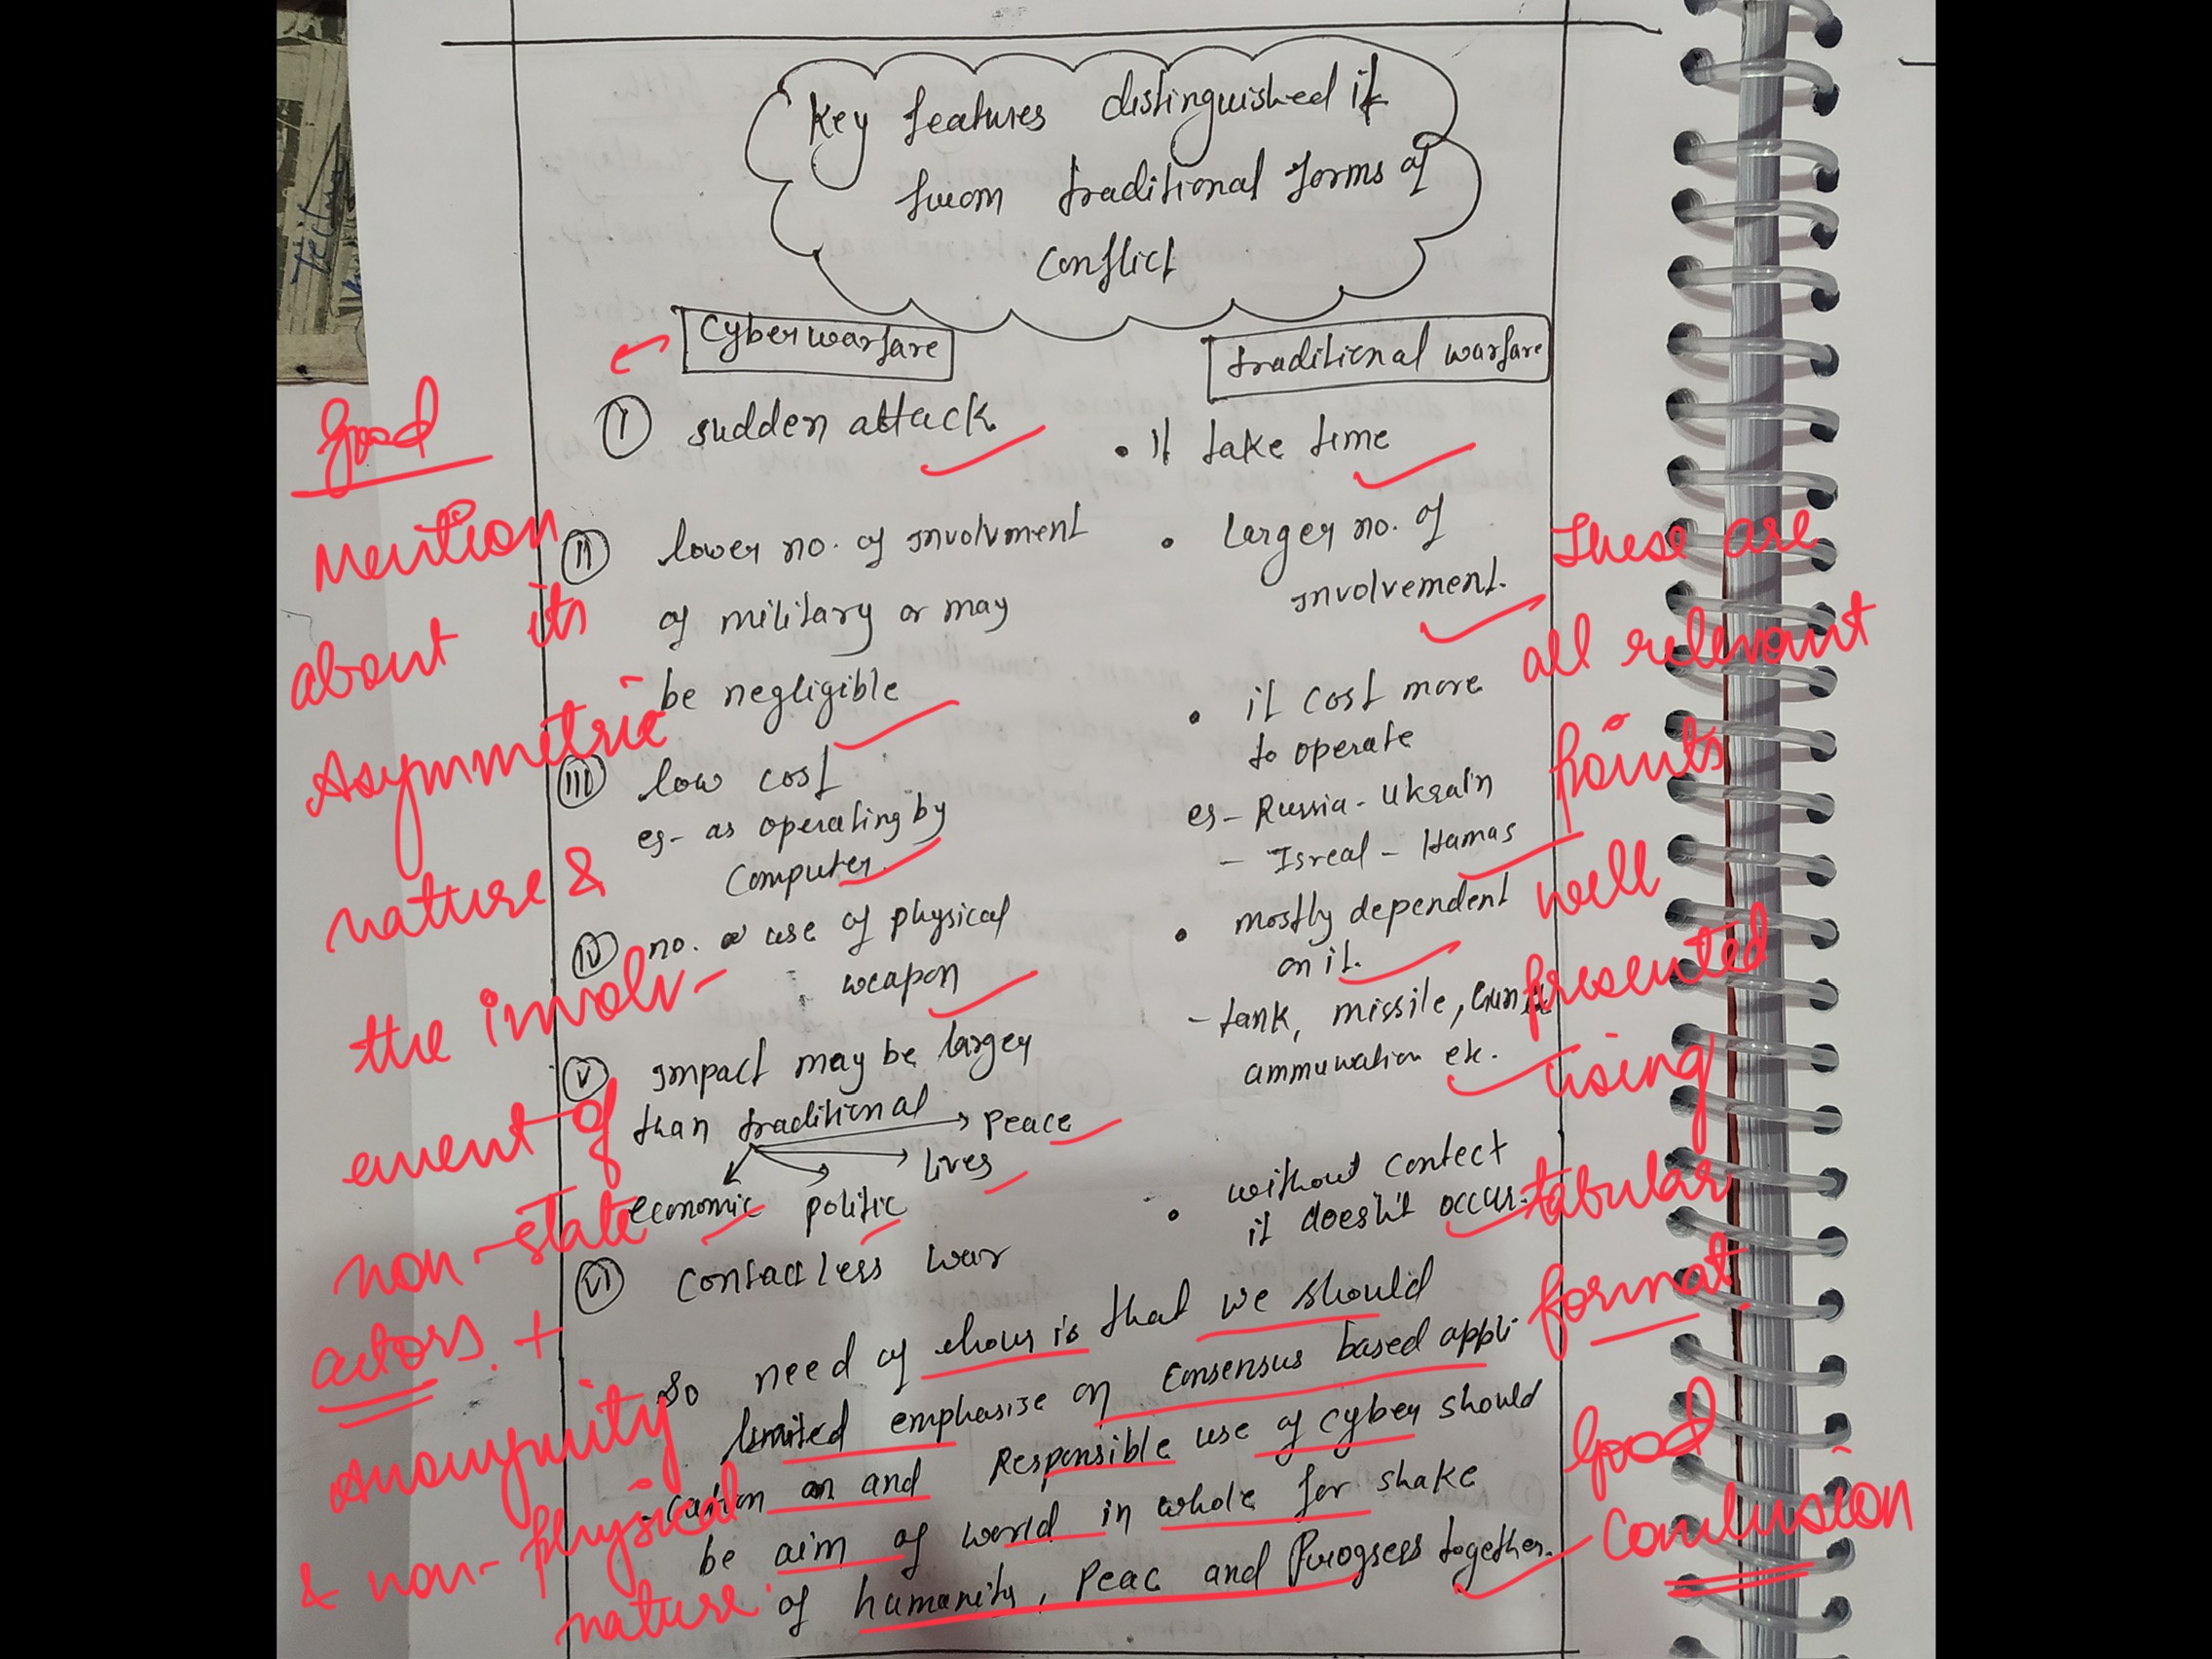 Key features distinguished it
from traditional forms of
conflict
Cyberwarfare
traditional warfare
I sudden attack
• It take time
II lower no. of involvment
of military or may
be negligible
• Larger no. of
involvement.
III low cost
eg- as operating by
Computer.
• it cost more
to operate
eg- Russia - Ukrain
- Isreal - Hamas
IV no. use of physical
weapon
• mostly dependent
on it.
- tank, missile,
ammunation etc.
V Impact may be larger
than traditional
Peace
lives
politic
economic
VI Contactless war
• without contect
it doesn't occur.
So need of hour is that we should
limited emphasize on consensus based appli
-cation and Responsible use of cyber should
be aim of world in whole for shake
of humanity, Peac and Progress together.
Good
Mention
about its
Asymmetric
nature &
the involv-
ement of
non-state
actors. +
Anonymity
& non-physical
nature.
These are
all relevant
points
well
presented
using
tabular
format.
Good
Conclusion